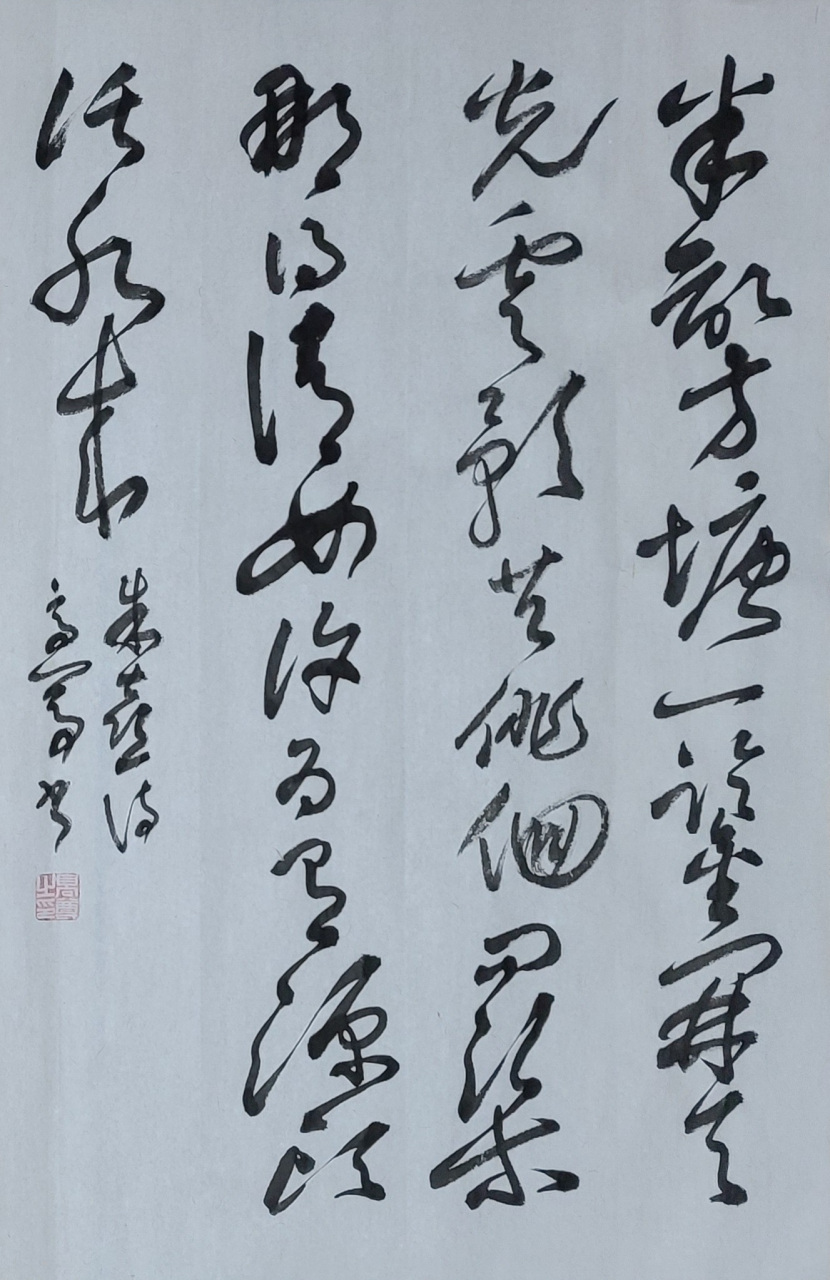 半畝方塘一鑒開天
光雲影共徘徊問渠
那得清如許為有源頭
活水來
朱熹詩
高書